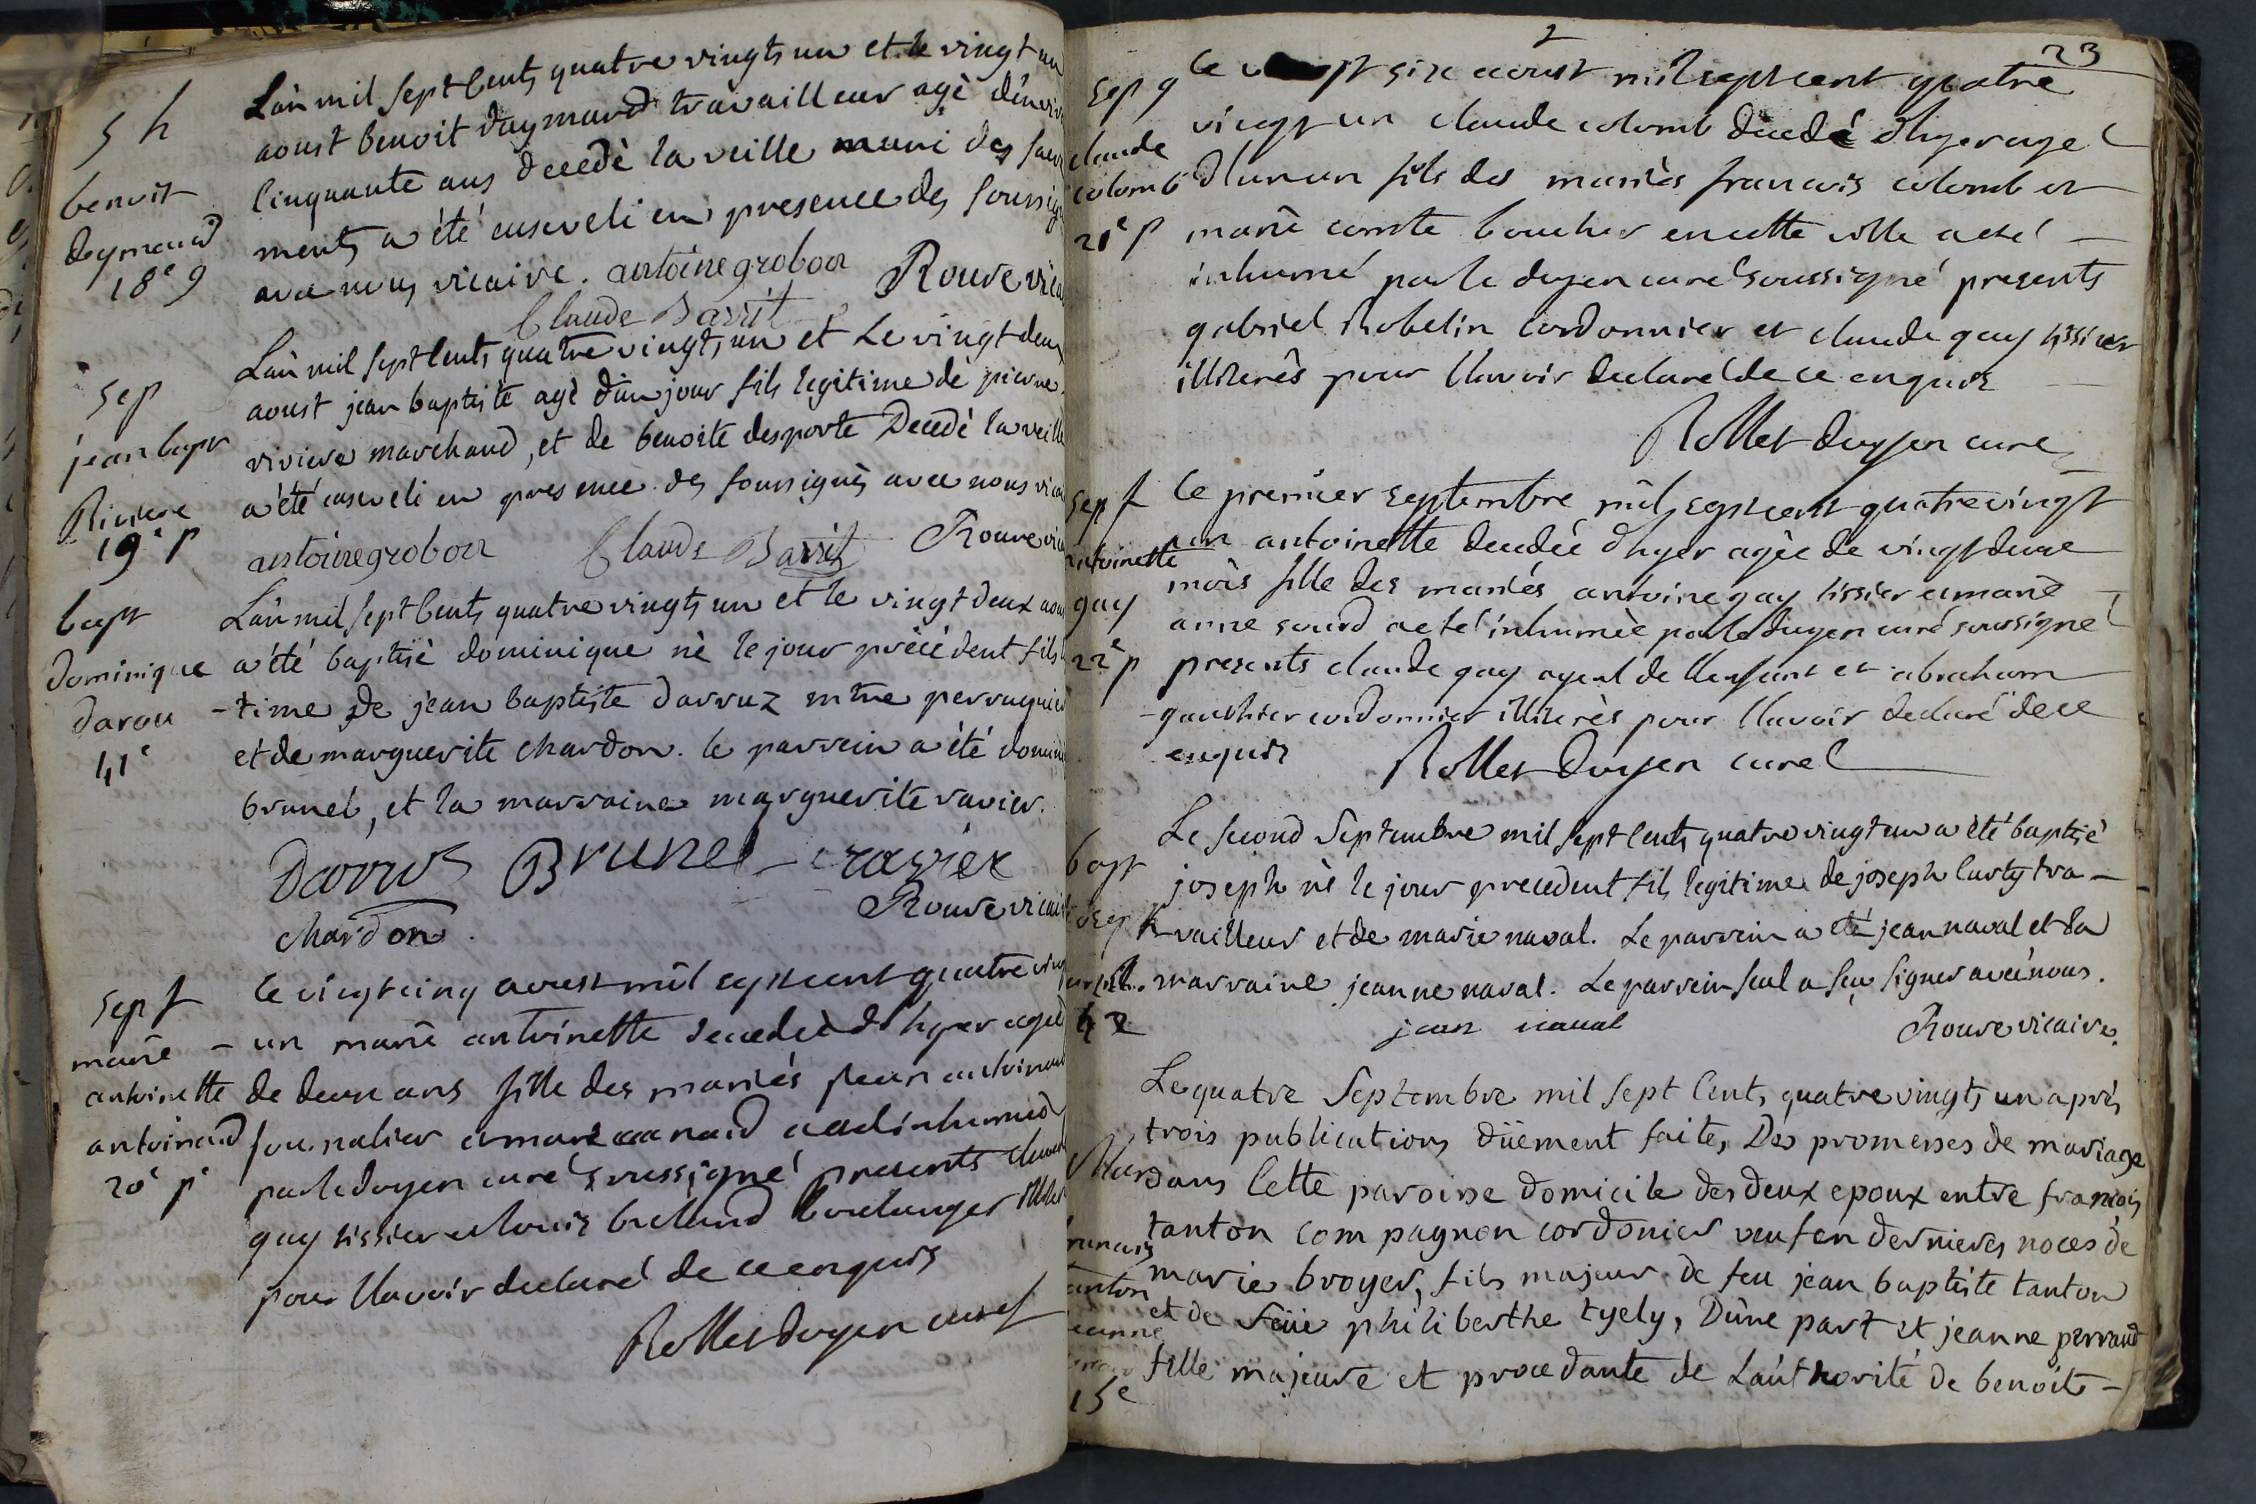 s h
benoit
daymard
18e g
L'an mil sept cents quatre vingts un et le vingt un
aoust benoit daymard travailleur agé d'envir
cinquante ans decedé la veille muni des sacr
ments a été enseveli en presence des soussig
avec nous vicaire. antoine grobon Rouve vica
Claude Barrit
sep
jean bapt
Riviere
19e p
L'an mil sept cents quatre vingts un et Le vingt deux
aoust jean baptiste agé d'un jour fils legitime de pierre
riviere marchand, et de benoite desporte Decedé la veille
a été enseveli en presence des soussignés avec nous vica
antoine grobon Claude Barrit Rouve vica
bapt
dominique
darou
41e
L'an mil sept cents quatre vingts un et le vingt deux aou
a été baptisé dominique né le jour précédent fils
-time de jean baptiste darruz mtre perruquier
et de marguerite chardon. le parrein a été domini
brunel, et la marraine marguerite ravier.
Brunel ravier
chardon Rouve vicair
sep f
marie
antoinette
antoinard
20e p
le vingt cinq aoust mil sept cent quatre ving
un marie antoinette decedée d'hyer agée
de deux ans fille des mariés jean antoinard
journalier et marie a été inhumée
par le doyen curé soussigné presents claude
guy tissier et louis breland boulanger illiter
pour l'avoir declaré de ce enquis
Rollet doyen curé
2
23
sep g
claude
colomb
21e p
le vingt six aoust mil sept cent quatre
vingt un claude colomb decedé d'hyer agé
d'un an fils des mariés francois colomb et
marie comte boucher en cette ville a été
inhumé par le doyen curé soussigné presents
gabriel Robelin cordonnier et claude guy tissier
illiterés pour l'avoir declaré de ce enquis
Rollet doyen curé
sep f
antoinette
guy
22e p
le premier septembre mil sept cent quatre vingt
un antoinette decedée d'hyer agée de vingt deux
mois fille des mariés antoine guy tissier et marie
anne a été inhumée par le doyen curé soussigné
presents claude guy ayeul de l'enfant et abraham
gauthier cordonnier illiterés pour l'avoir declaré de ce
enquis Rollet doyen curé
bapt
joseph
42
Le second Septembre mil sept cents quatre vingt un a été baptisé
joseph né le jour precedent fils legitime de joseph curty tra-
vailleur et de marie naval. Le parrein a eté jean naval et la
marraine jeanne naval. Le parrein seul a sçu signer avec nous.
jean naval Rouve vicaire.
Mar
francois
tanton
jeanne
15e
Le quatre Septembre mil sept Cents quatre vingts un après
trois publications düement faites Des promesses de mariage
dans Cette paroisse domicile des deux epoux entre francois
tanton compagnon cordonier veuf en dernieres noces de
marie broyer, fils majeur de feu jean baptiste tanton
et de feüe philiberthe tyely, D'une part et jeanne perraud
fille majeure et procedante de L'authorité de benoite -